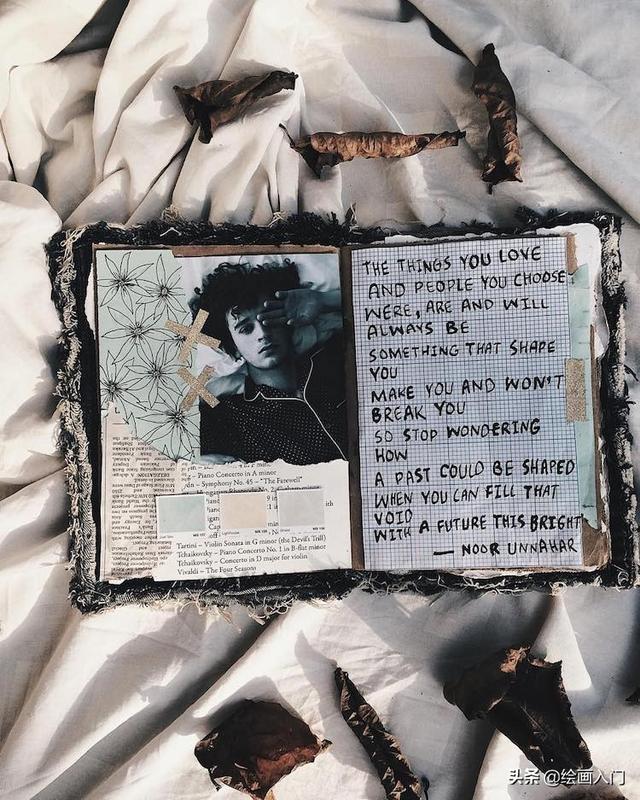 Piano Concerto in A minor
– Symphony No. 45 – "The Farewell"
Tartini – Violin Sonata in G minor (the Devil's Trill)
Tchaikovsky – Piano Concerto No. 1 in B-flat minor
Tchaikovsky – Concerto in D major for violin
Vivaldi – The Four Seasons
THE THINGS YOU LOVE
AND PEOPLE YOU CHOOSE
WERE, ARE AND WILL
ALWAYS BE
SOMETHING THAT SHAPE
YOU
MAKE YOU AND WON'T
BREAK YOU
SO STOP WONDERING
HOW
A PAST COULD BE SHAPED
WHEN YOU CAN FILL THAT
VOID
WITH A FUTURE THIS BRIGHT
— NOOR UNNAHAR
头条 @绘画入门